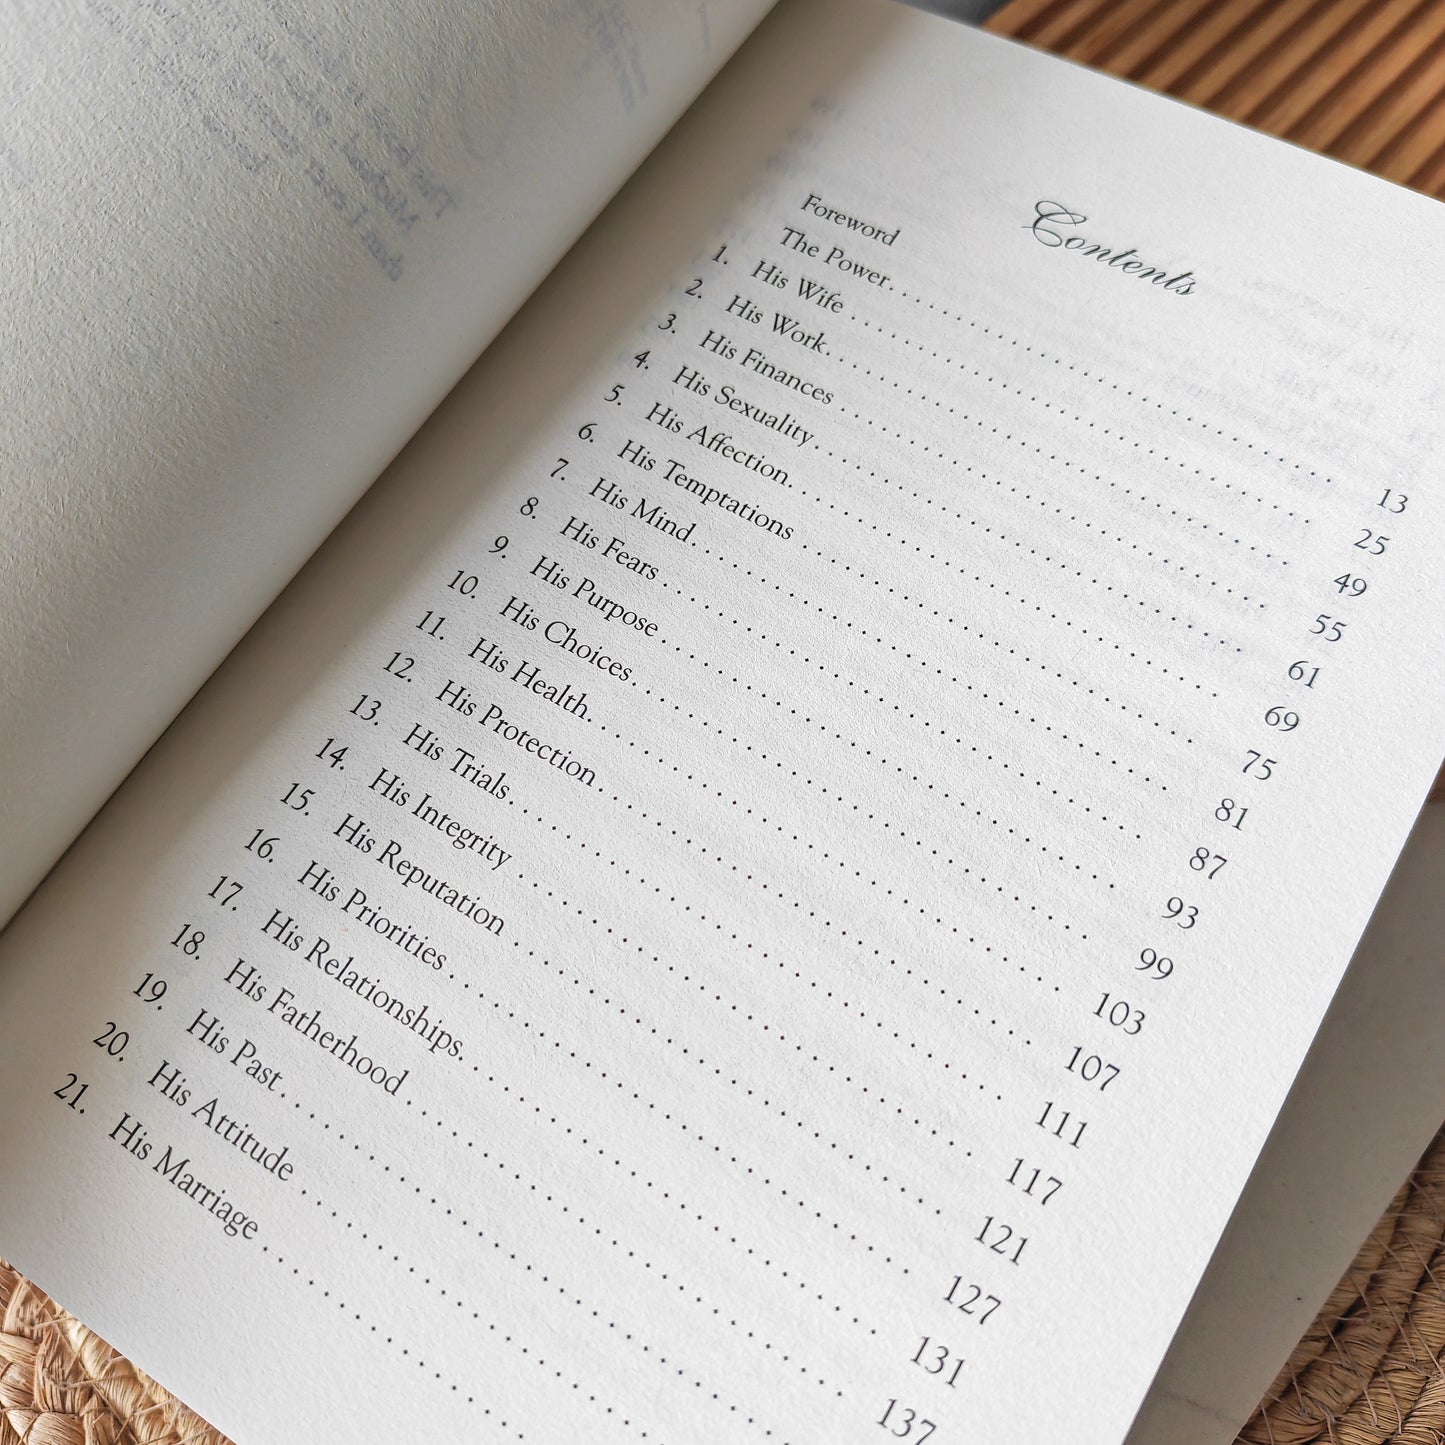 Contents
Foreword
The Power. . . . . . . . . . . . . . . . . . . . 13
1. His Wife . . . . . . . . . . . . . . . . . . . . 25
2. His Work. . . . . . . . . . . . . . . . . . . . 49
3. His Finances . . . . . . . . . . . . . . . . . . . . 55
4. His Sexuality. . . . . . . . . . . . . . . . . . . . 61
5. His Affection. . . . . . . . . . . . . . . . . . . . 69
6. His Temptations . . . . . . . . . . . . . . . . . . . . 75
7. His Mind. . . . . . . . . . . . . . . . . . . . 81
8. His Fears . . . . . . . . . . . . . . . . . . . . 87
9. His Purpose . . . . . . . . . . . . . . . . . . . . 93
10. His Choices. . . . . . . . . . . . . . . . . . . . 99
11. His Health. . . . . . . . . . . . . . . . . . . . 103
12. His Protection . . . . . . . . . . . . . . . . . . . . 107
13. His Trials. . . . . . . . . . . . . . . . . . . . 111
14. His Integrity . . . . . . . . . . . . . . . . . . . . 117
15. His Reputation . . . . . . . . . . . . . . . . . . . . 121
16. His Priorities . . . . . . . . . . . . . . . . . . . . 127
17. His Relationships. . . . . . . . . . . . . . . . . . . . 131
18. His Fatherhood . . . . . . . . . . . . . . . . . . . . 137
19. His Past. . . . . . . . . . . . . . . . . . . .
20. His Attitude . . . . . . . . . . . . . . . . . . . .
21. His Marriage . . . . . . . . . . . . . . . . . . . .